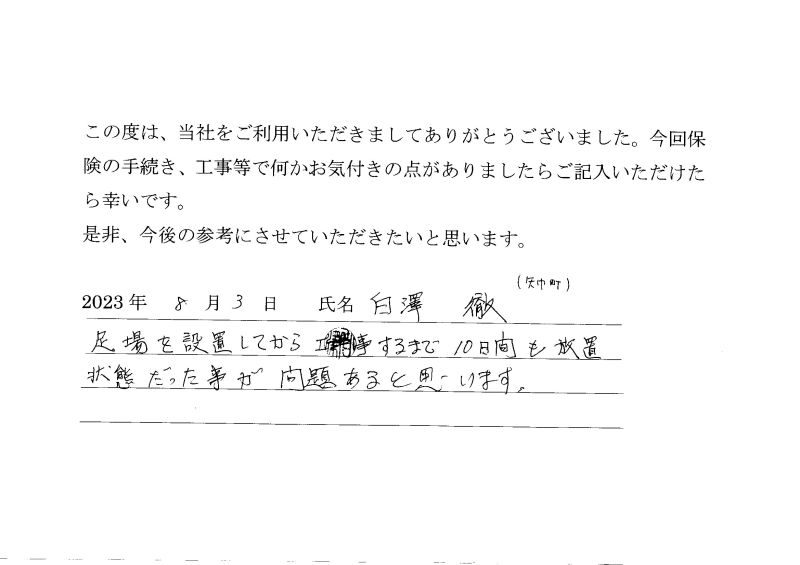 この度は、当社をご利用いただきましてありがとうございました。今回保
険の手続き、工事等で何かお気付きの点がありましたらご記入いただけた
ら幸いです。
是非、今後の参考にさせていただきたいと思います。
(矢中町)
2023年 8月3日 氏名 白澤 徹
足場を設置してから工事するまで10日間も放置
状態だった事が問題あると思います。